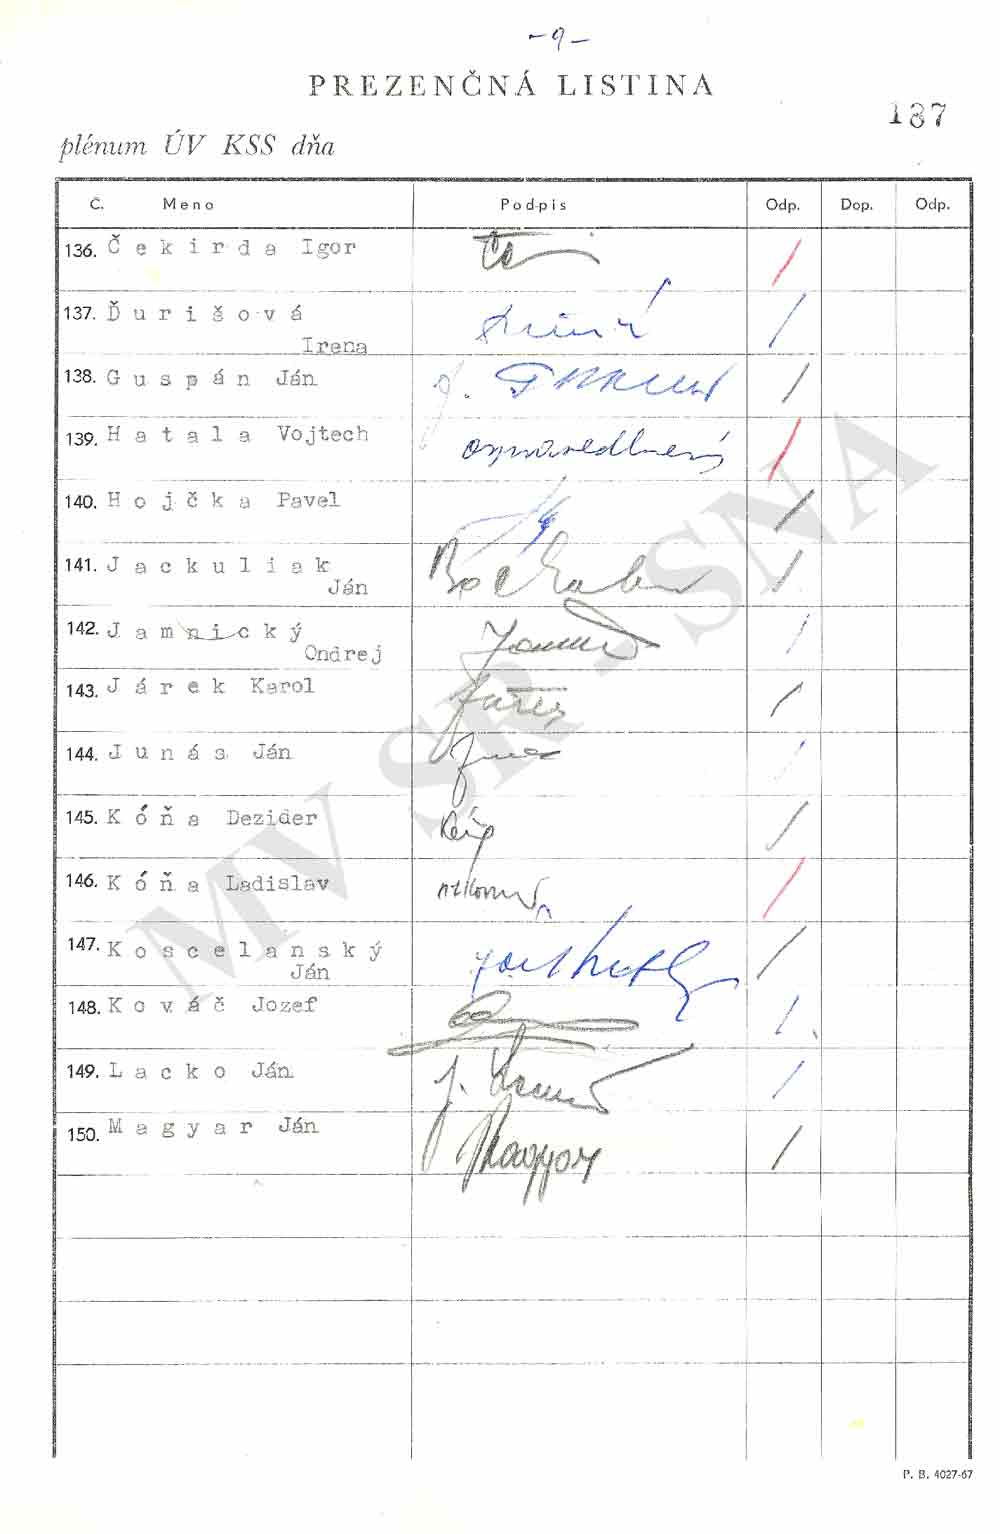 - 9 -
PREZENČNÁ LISTINA
187
plénum ÚV KSS dňa
Č. Meno Podpis Odp. Dop. Odp.
136. Čekirda Igor
137. Ďurišová
Irena
138. Guspán Ján
139. Hatala Vojtech ospravedlnený
140. Hojčka Pavel
141. Jackuliak
Ján
142. Jamnický
Ondrej
143. Járek Karol
144. Junás Ján
145. Kóňa Dezider
146. Kóňa Ladislav
147. Koscelanský
Ján
148. Kováč Jozef
149. Lacko Ján
150. Magyar Ján Magyar
MV SR - SNA
P. B. 4027-67